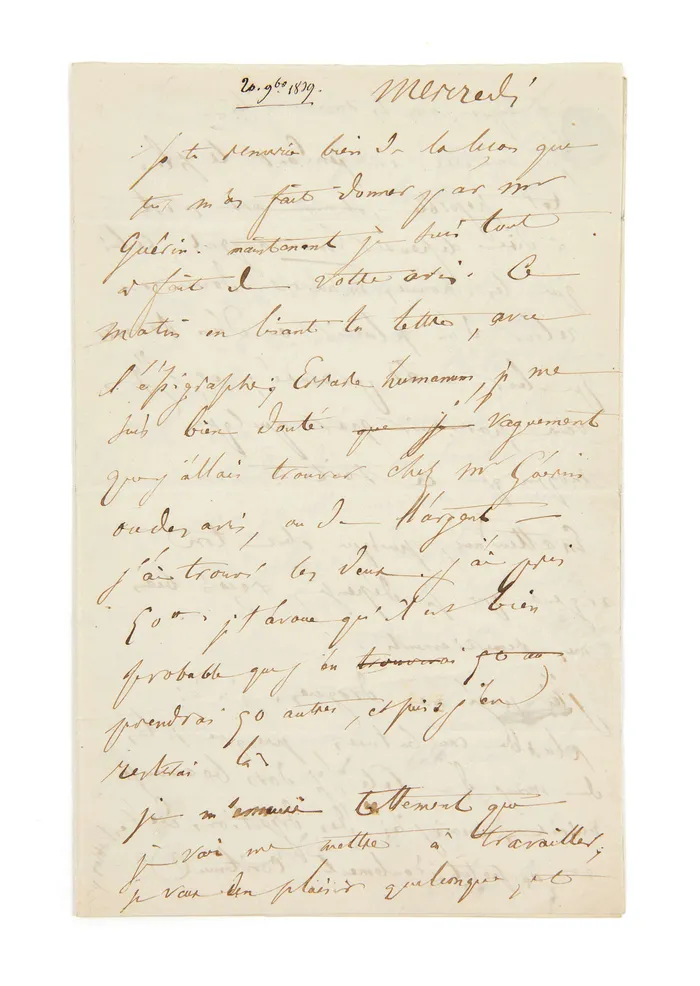 20. 9bre 1829.
Mercredi
Je te remercie bien de la leçon que
tu m'as fait donner par mr
Guérin. maintenant je suis tout
à fait de votre avis. Ce
matin en lisant ta lettre, avec
l'épigraphe, Errare humanum, je me
suis bien douté que j' vaguement
que j'allais trouver chez mr Guérin
ou des avis, ou de l'argent —
j'ai trouvé les deux. j'ai pris
50 je t'avoue qu'il est bien
probable que j'en trouverai 50 au
prendrai 50 autres, et puis j'en
resterai là
je m'ennuie tellement que
je vais me mettre à travailler;
je veux un plaisir quelconque, et